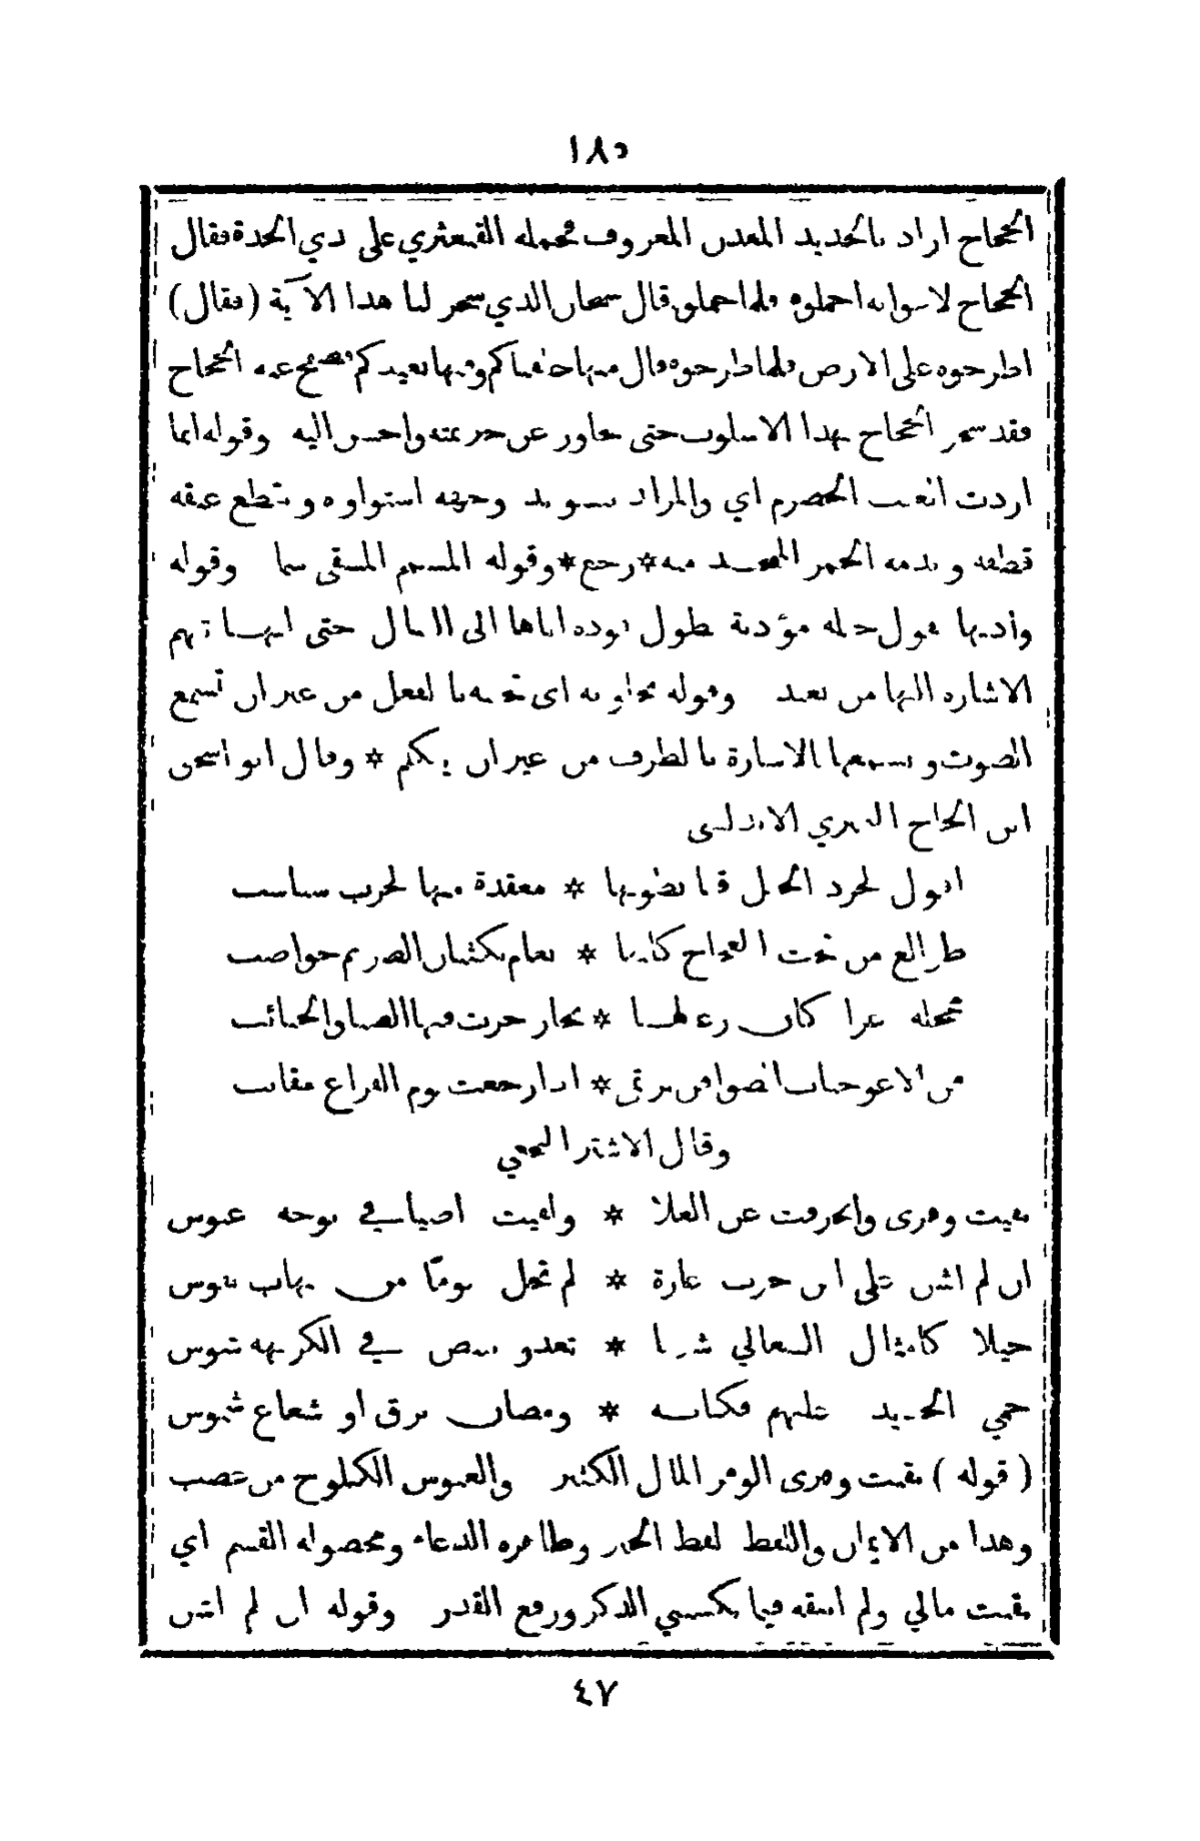 ١٨٥
الحجاج اراد بالحديد المعدن المعروف فحمله القبعثري على ذي الحدة فقال
الحجاج لاعوانه احملوه فلما حملوه قال سبحان الذي سخر لنا هذا الآية (فقال)
اطرحوه على الارض فلما طرحوه قال منها خلقناكم وفيها نعيدكم فصفح عنه الحجاج
فقد سحر الحجاج بهذا الاسلوب حتى تجاوز عن جريمته واحسن اليه وقوله انما
اردت العنب الحصرم اي والمراد بسويد وجهه استواوه وبقطع عنقه
قطفه وبدمه الخمر المتخذ منه * رجع * وقوله المسم المسقى سما وقوله
وأذنها يقول خيله مؤذنة بطول نوده اياها الى القتال حتى انها تفهم
الاشاره اليها من بعيد وقوله تجاوبه اي تجيبه بالفعل من غير ان تسمع
الصوت ويسمعها الاشارة بالطرف من غير ان يتكلم * وقال ابو اسحق
ابن الحاج النميري الاندلسي
اقول لجرد الخيل قبا بطونها * معقدة منها لحرب سباسب
طوالع من تحت العجاج كانها * نعام بكثبان الصريم خواضب
محجلة غرا كان رعالها * بحار جرت فيها الصبا والجنائب
من الاعوجيات الصوافن ترتمي * اذا رجعت يوم القراع مقانب
وقال الاشتر النخعي
بقيت وفرى وانحرفت عن العلا * ولقيت اضيافي بوجه عبوس
ان لم اشن على ابن حرب غارة * لم تخل يومًا من نهاب نفوس
خيلا كامثال السعالي شزبا * تعدو ببيض في الكريهه شوس
حمي الحديد عليهم فكانه * ومضان برق او شعاع شموس
(قوله) بقيت وفرى الوفر المال الكثير والعبوس الكلوح من غضب
وهذا من الايمان واللفظ لفظ الخبر وظاهره الدعاء ومحصوله القسم اي
بقيت مالي ولم انفقه فيما يكسبني الذكر ورفع القدر وقوله ان لم اشن
٤٧